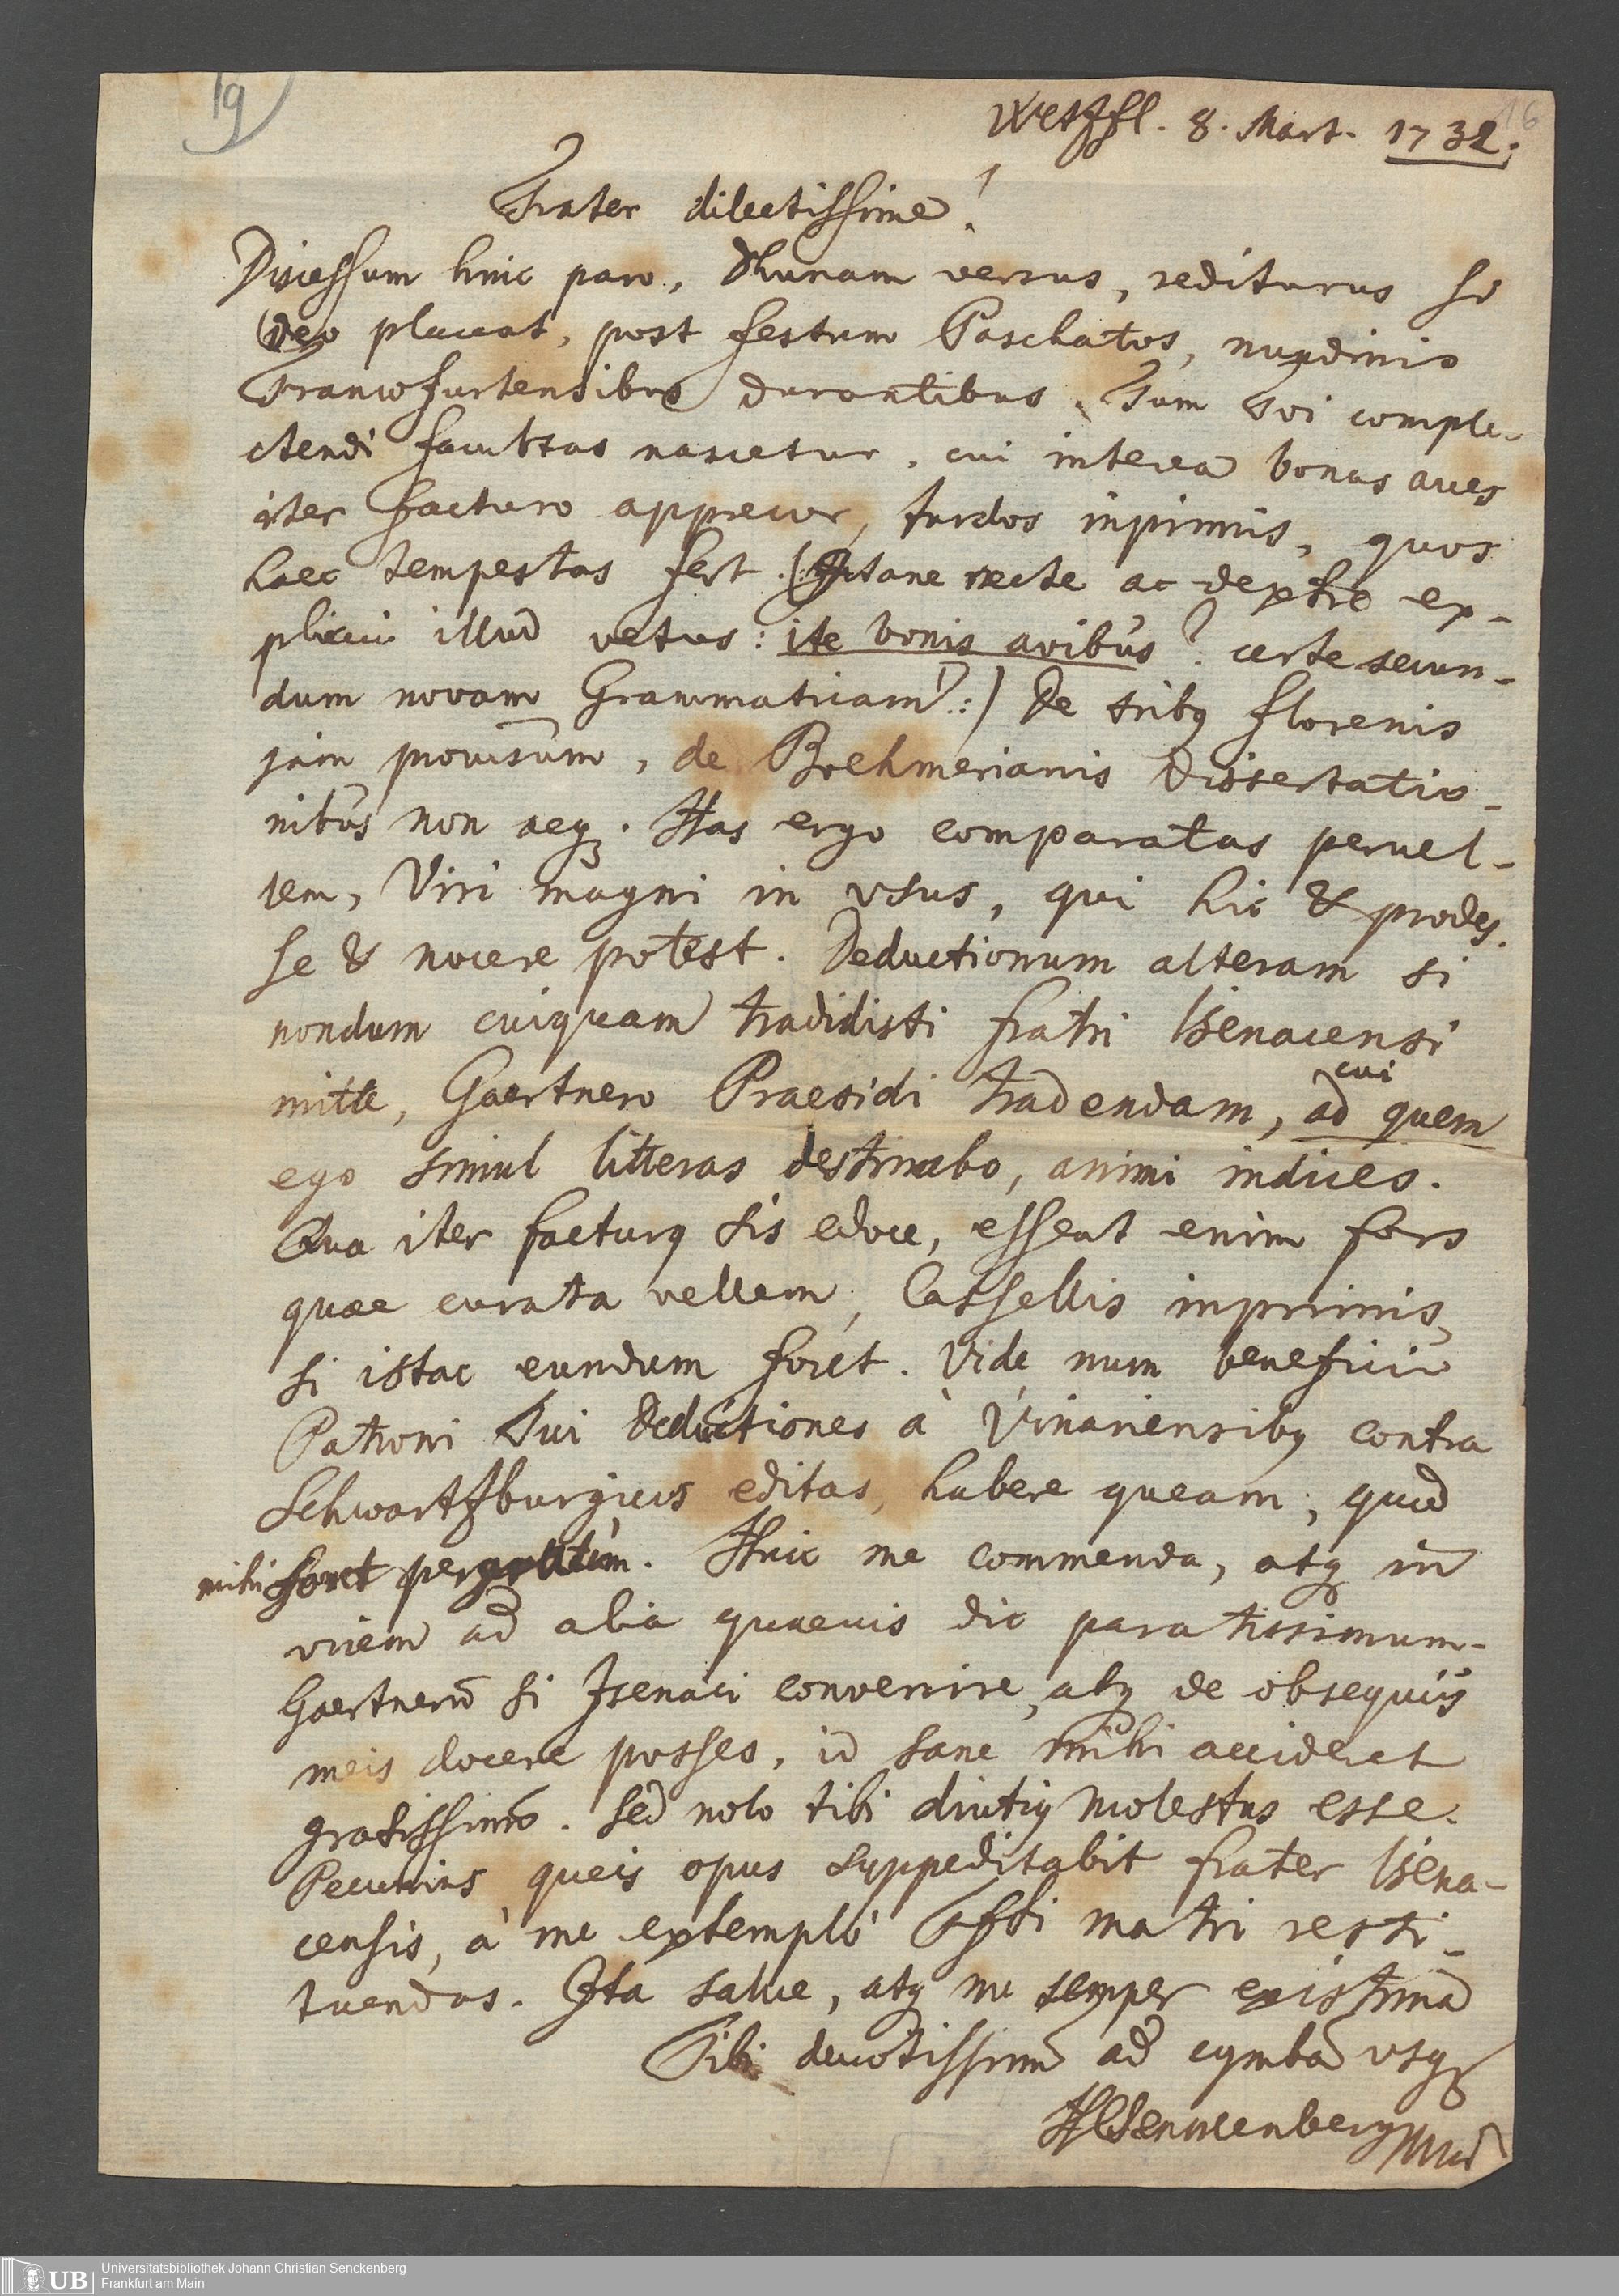 19
16
Wetzfl. 8. Mart. 1732.
Frater dilectissime!
Discessum hinc paro, Dhunam versus, rediturus si
Deo placeat, post festum Paschatos, nundinis
Francofurtensibus durantibus. Tum Tui comple-
ctendi facultas nascetur, cui interea bonas aves
iter facturo apprecor, turdos inprimis, quos
haec tempestas fert. (Itane recte ac dextre ex-
plicui illud vetus: ite bonis avibus? certe secun-
dum novam Grammaticam?:) De tribq florenis
jam provisum, de Boehmerianis Dissertatio-
nibus non aeq. Has ergo comparatas pervel-
lem, Viri magni in usus, qui hic & prodes-
se & nocere potest. Deductionum alteram si
nondum cuiquam tradidisti fratri Isenacensi
mitte, Gaertnero Praesidi tradendam, ad quem
cui
ego simul litteras destinabo, animi indices.
Qua iter facturq sis edoce, essent enim fors
quae curata vellem, Cassellis inprimis,
si istac eundum foret. Vide num beneficio
Patroni Tui Deductiones à Vinariensibq contra
Schwartzburgicos editas, habere queam, quod
mihi foret pergratum. Huic me commenda, atq in
vicem ad alia quaevis dic paratissimum.
Gaertnerū si Isenaci convenire, atq de obsequiis
meis docere posses, id sane mihi accideret
gratissimū. Sed nolo tibi diutiq molestus esse.
Pecunias queis opus suppeditabit frater Isena-
censis, à me extemplò Fffti matri resti-
tuendas. Ita salve, atq me semper existima
Tibi devotissimū ad cymbā usq
HCSenckenberg